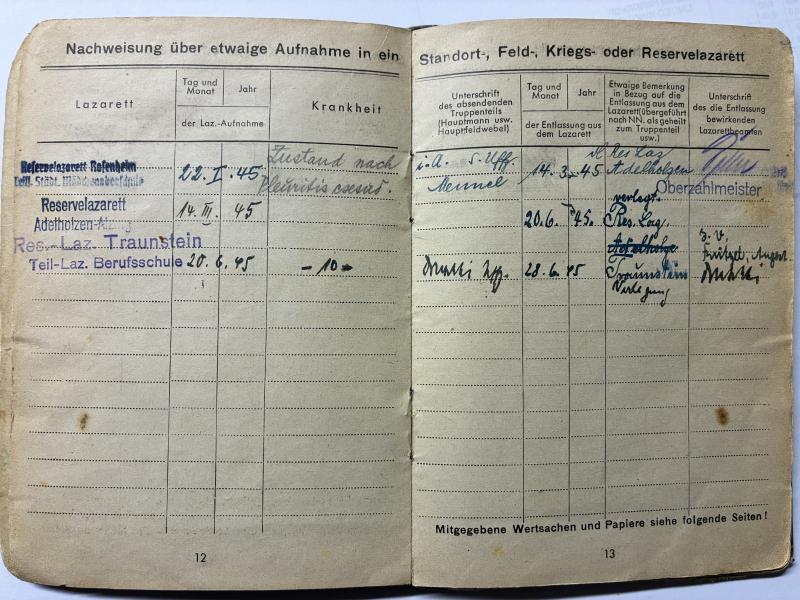 Nachweisung über etwaige Aufnahme in ein
Lazarett
Tag und Monat
Jahr
der Laz.-Aufnahme
Krankheit
Reservelazarett Rosenheim
Teill. Städt.
22. I. 45
Zustand nach
Pleuritis
Reservelazarett
Adelholzen
14. III. 45
Res.-Laz. Traunstein
Teil-Laz. Berufsschule
20. 6. 45
- 10 -
12
Standort-, Feld-, Kriegs- oder Reservelazarett
Unterschrift
des absendenden
Truppenteils
(Hauptmann usw.
Hauptfeldwebel)
Tag und Monat
Jahr
der Entlassung aus
dem Lazarett
Etwaige Bemerkung
in Bezug auf die
Entlassung aus dem
Lazarett(übergeführt
nach NN. als geheilt
zum Truppenteil
usw.)
Unterschrift
des die Entlassung
bewirkenden
Lazarettbeamten
i. A. Uffz.
14. 3. 45
Res Laz
Adelholzen
Oberzahlmeister
verlegt.
20. 6. 45.
Res. Laz.
Traunstein
28. 6. 45
Verlegung
Mitgegebene Wertsachen und Papiere siehe folgende Seiten!
13